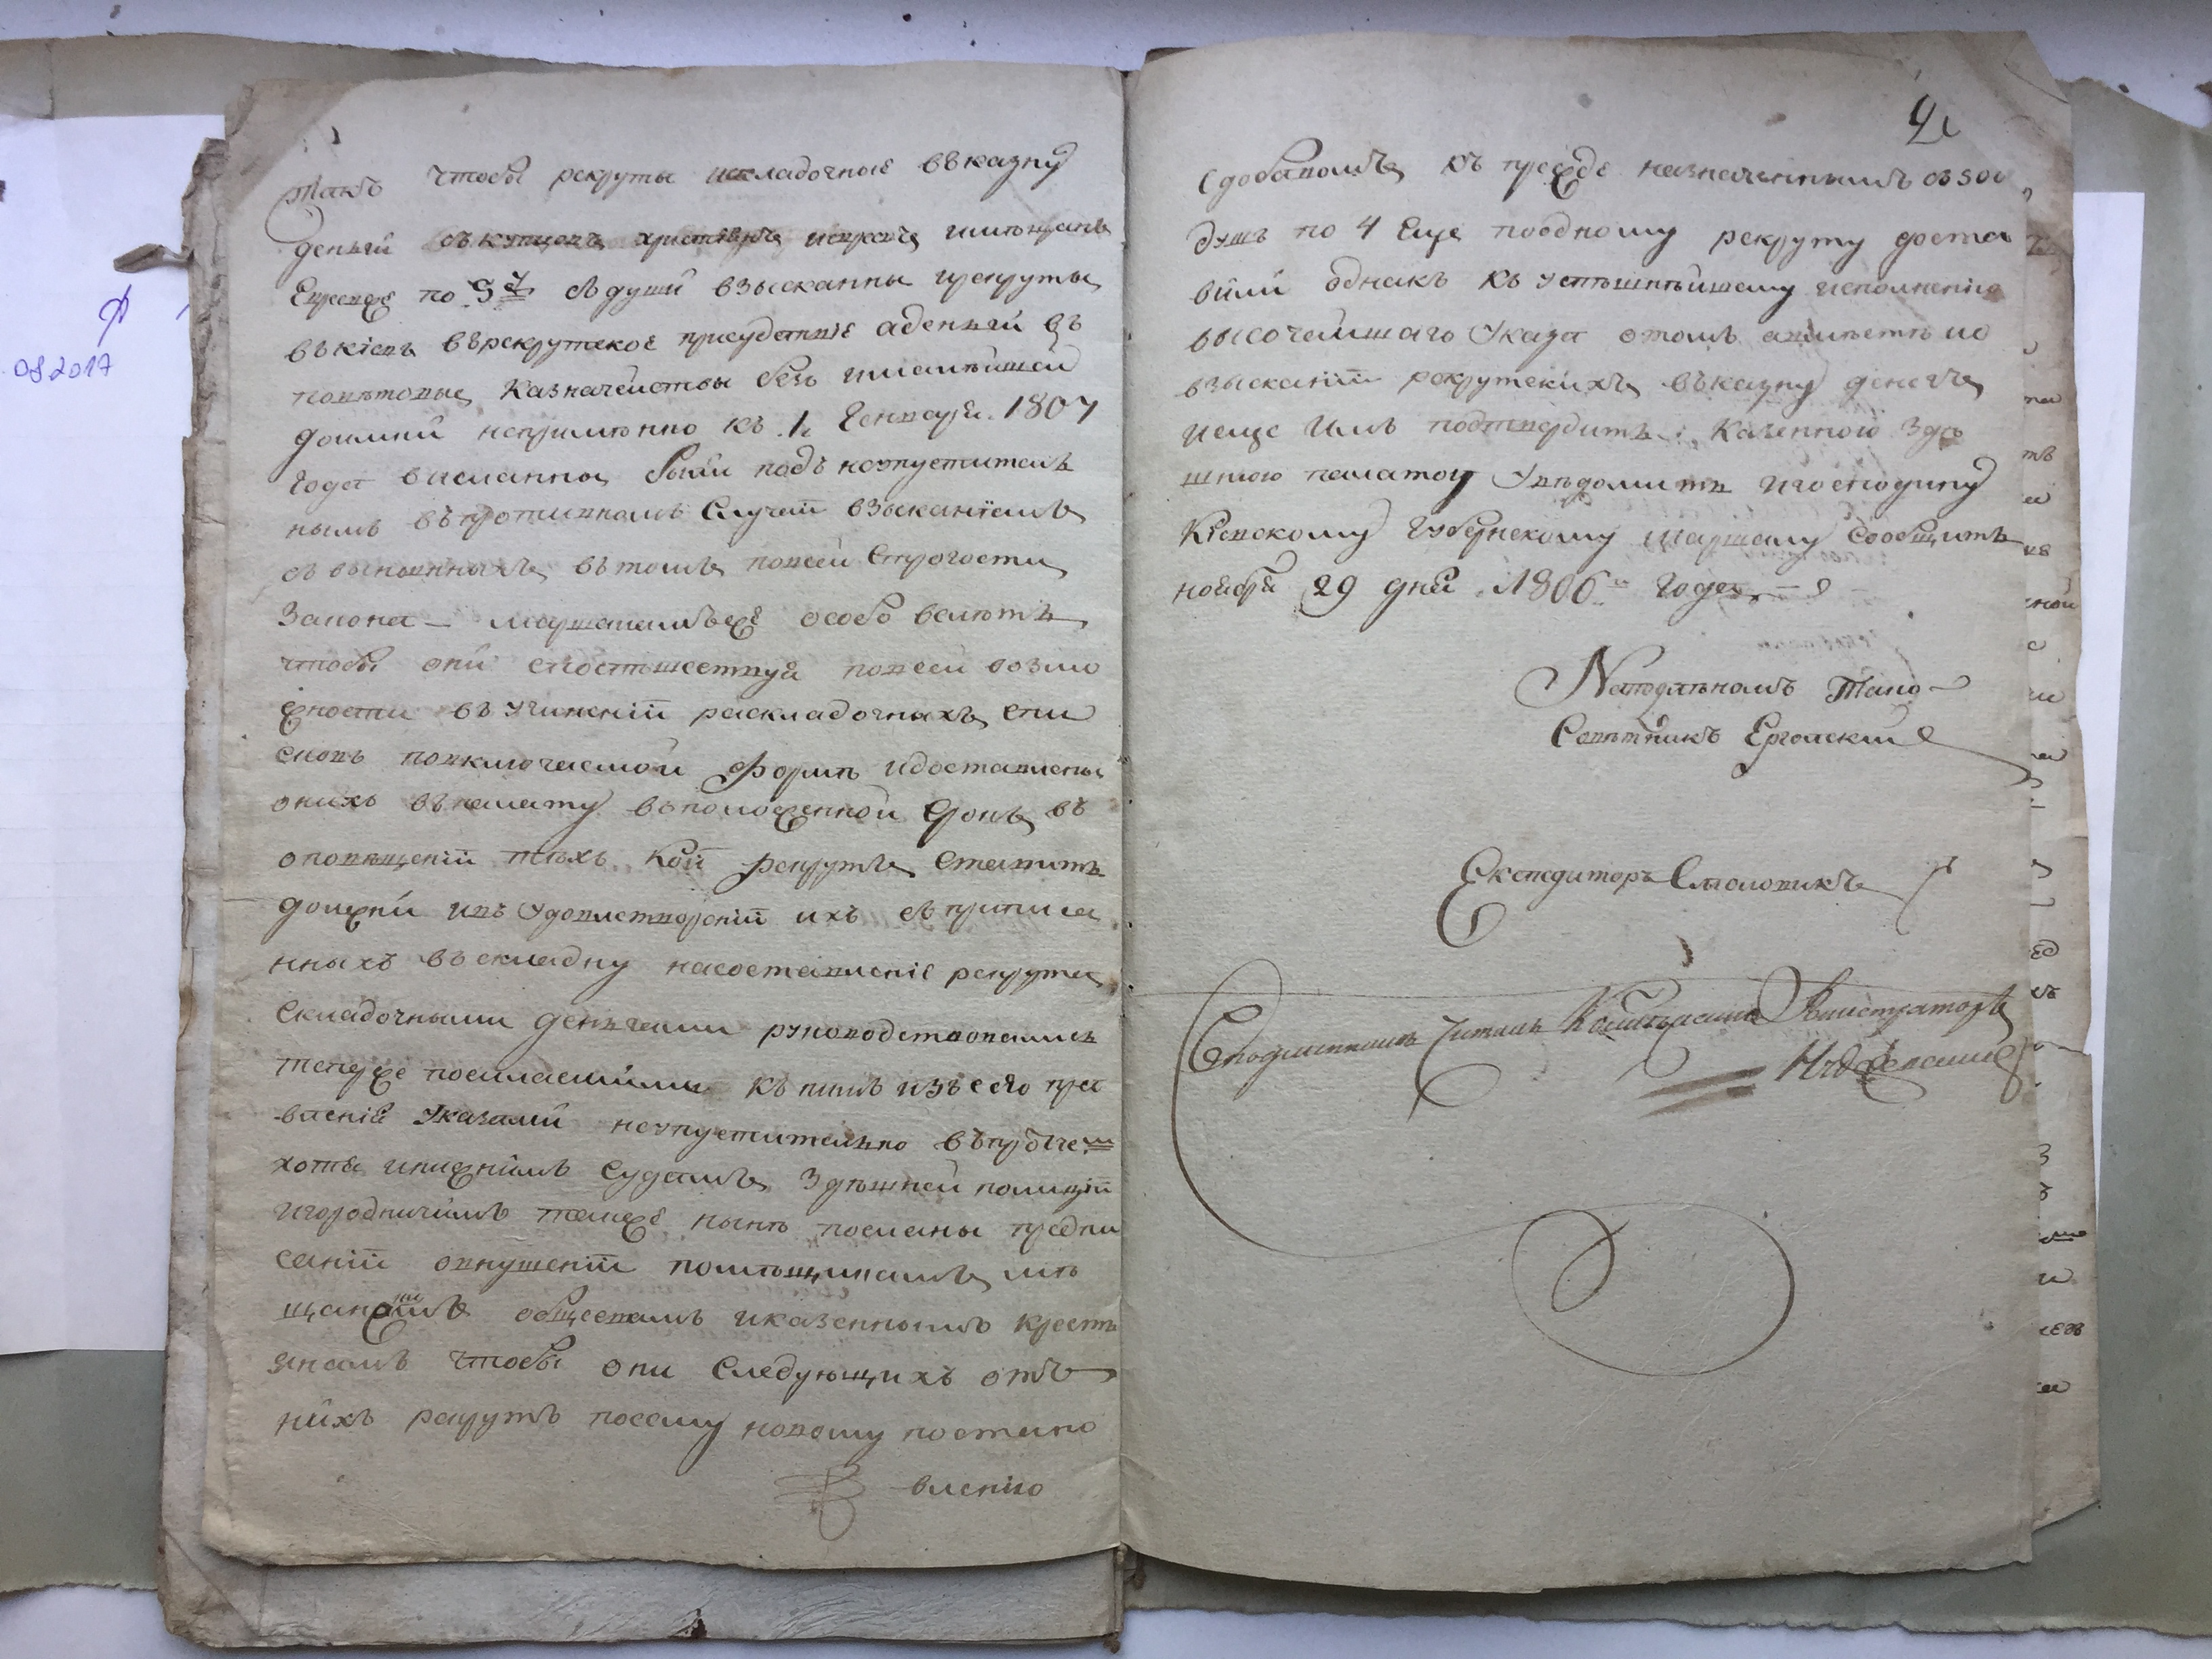 08 2017
такъ чтобы рекруты искладочные въказну
деньги съкупцовъ христіянъ иевреевъ имещанъ
Евреевже по 5 съдуши взысканны ирекруты
въкіевъ врекрутское присудствіе аденьги въ
поветовые Казначействы безъ малѣйшей
доимки непремѣнно къ 1. Генваря. 1807
Года внесенны были подъ неупустителъ
нымъ въпротивномъ Случаи взысканіемъ
съвыновныхъ въ томъ повсей Строгости
Закона — Маршаламъже особо велѣть
чтобы они споспѣшествуя повсей возмо
жности въ Учиненіи раскладочныхъ спи
сковъ повключаемой формѣ идоставлены
онихъ въпалату въположенной Срокъ въ
оповѣщеніи тѣхъ Кои рекрутъ Ставить
должни ивъ Удовлетвореніи ихъ съприписа
нныхъ въскладку насоставленіе рекрута
Складочными деньгами руководствовались
теперже посилаемими къ нимъ изъсего пра
вленія Указами неупустительно впрочем
хотя инижнимъ Судамъ Здѣшней полиціи
игородничимъ также нынѣ посланы предпи
саніи овнушеніи помѣщикамъ мѣ
щанскимъ обществамъ иказеннымъ кресть
янамъ Чтобы они Следующихъ отъ
нихъ рекрутъ посему новому постано
вленію
4
Сдобавкомъ къ прежде назначеннымъ съ 500
душъ по 4 Еще поодному рекруту доста
вили однакъ къ Успѣшнѣйшему исполненію
высочайшаго Указа отомъ
взысканіи рекрутскихъ въказну денегъ
иеще имъ подтвердить. Казенною Здѣ
шнюю палатою Увѣдомить игосподину
Кіевскому Губернскому маршалу Сообщить
ноября 29 дня 1806 года
Наподлѣномъ Тако
Совѣтникъ Ергольскій
Експедиторъ Смоловикъ
Сподлиннимъ Читалъ Регистраторъ